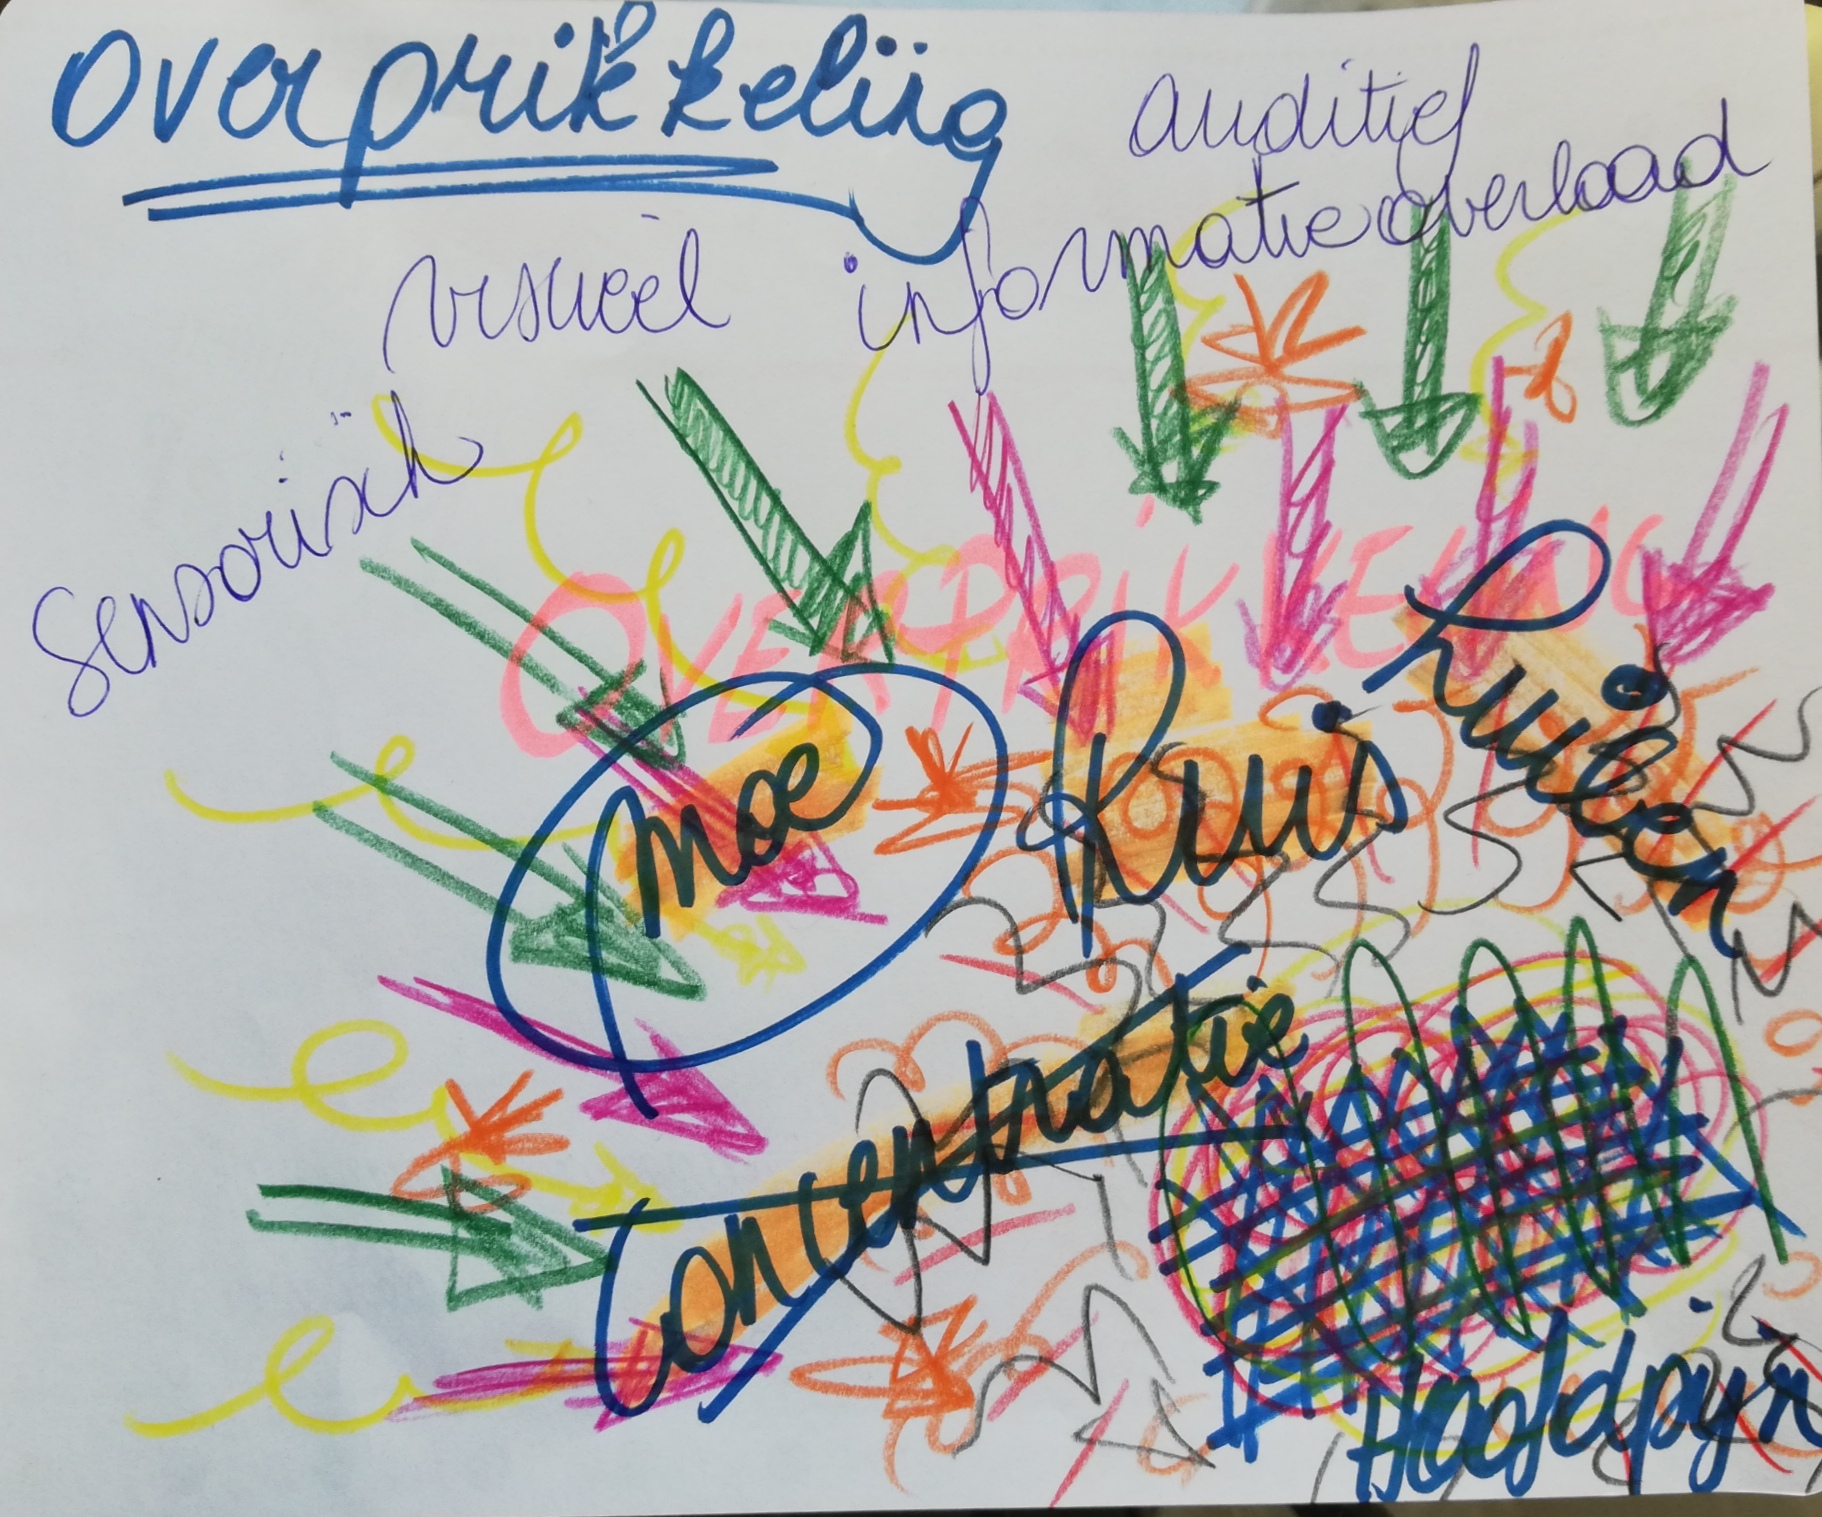 overprikkeling
auditief
visueel
informatieoverload
sensorisch
OVERPRIKKELING
moe
Ruis
huilen
concentratie
Hoofdpijn